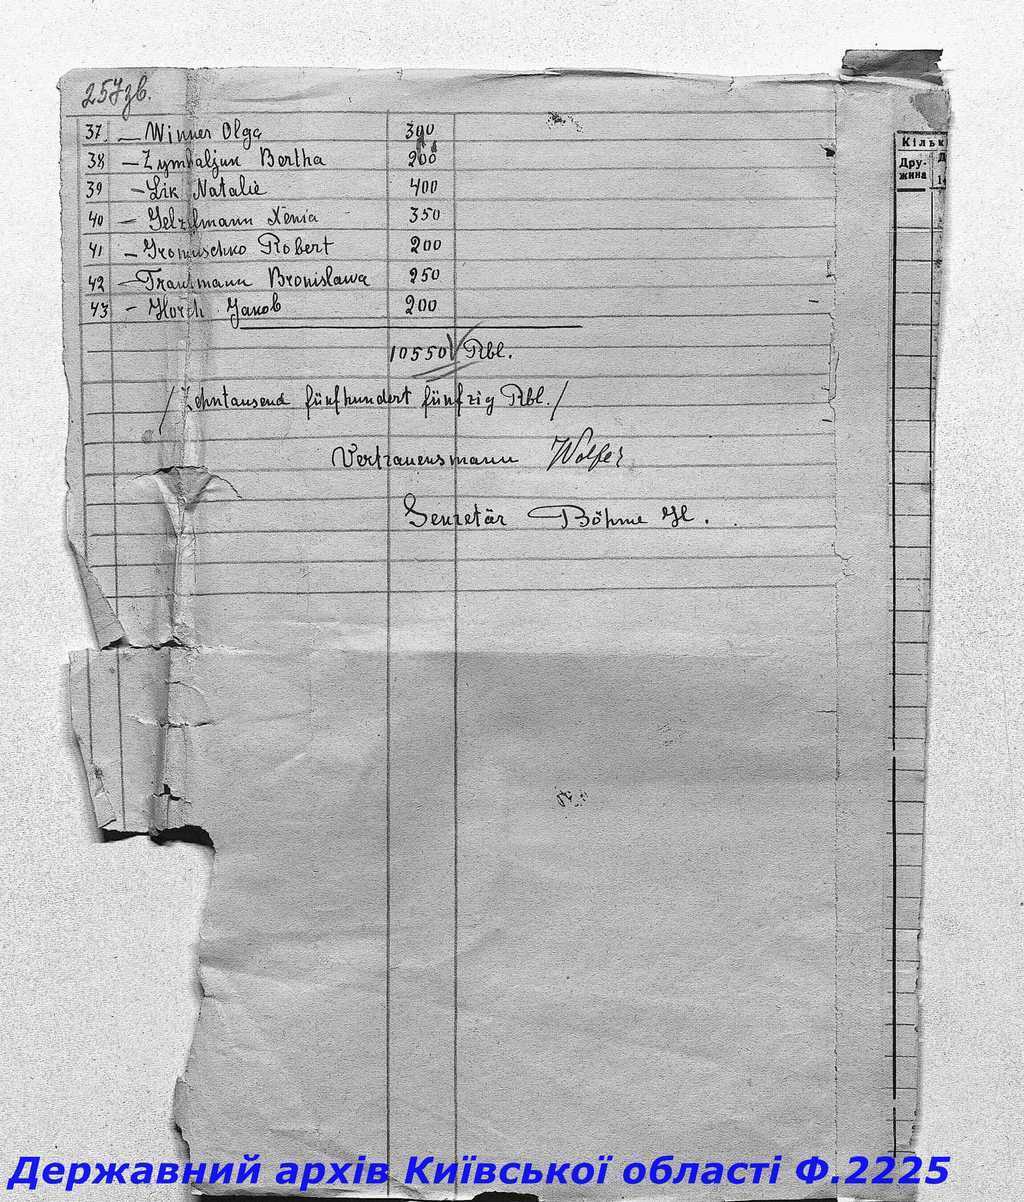 257зв.
37. – Winner Olga 300
38 – Zymbaljun Bertha 200
39 – Lik Natalie 400
40 – Xenia 350
41 – Robert 200
42 – Trautmann Bronislawa 250
43 – Horch Jakob 200
10550 Rbl.
/Zehntausend fünfhundert fünfzig Rbl./
Vertrauensmann Wolfer
Sekretär Böhme H.
Кільк
Дру-
жина
Державний архів Київської області Ф.2225